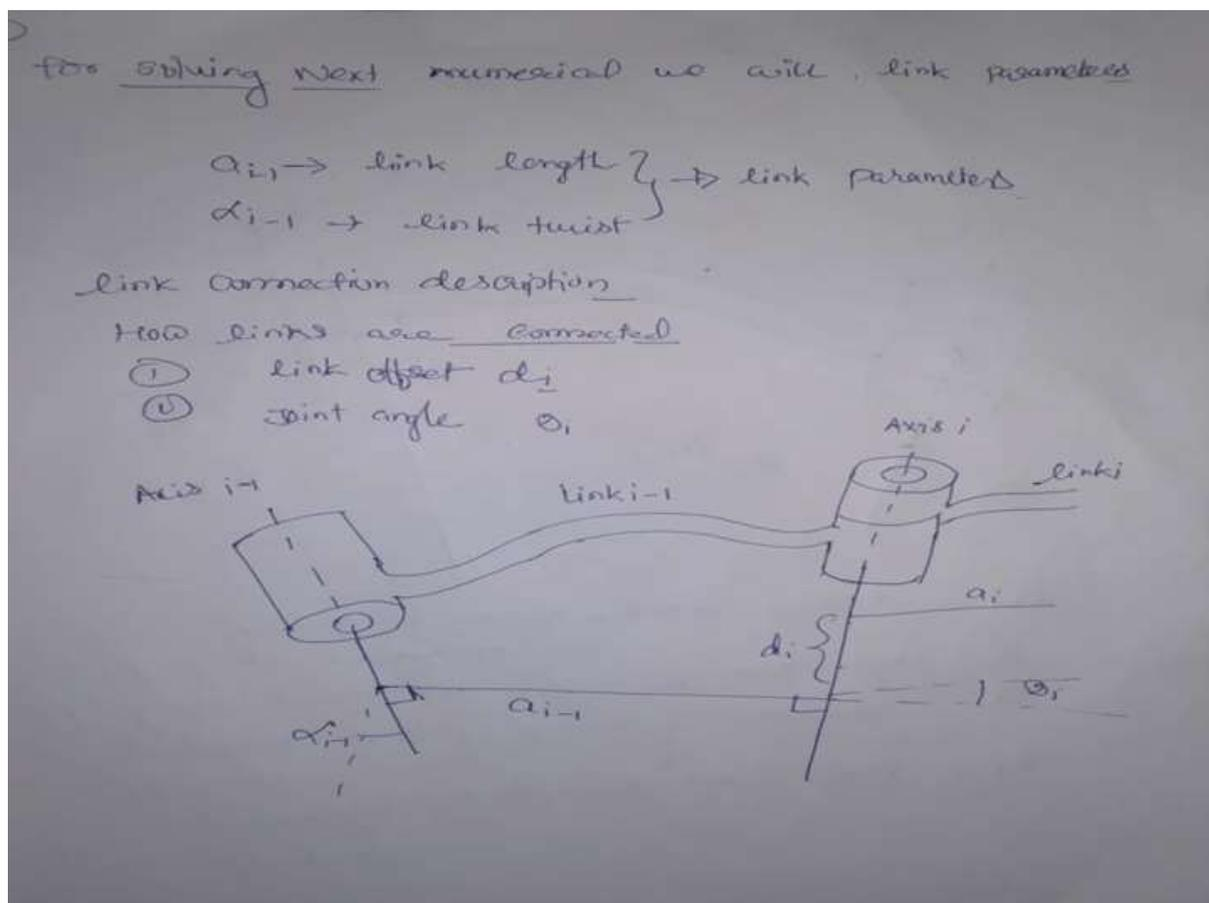 for solving Next numerical we will, link parameters
a i-1 → link length } → link parameters
α i-1 → link twist
link connection description
How links are connected
① link offset di
② Joint angle θi
Axis i
Axis i-1
Link i-1
link i
ai
di
θi
a i-1
α i-1